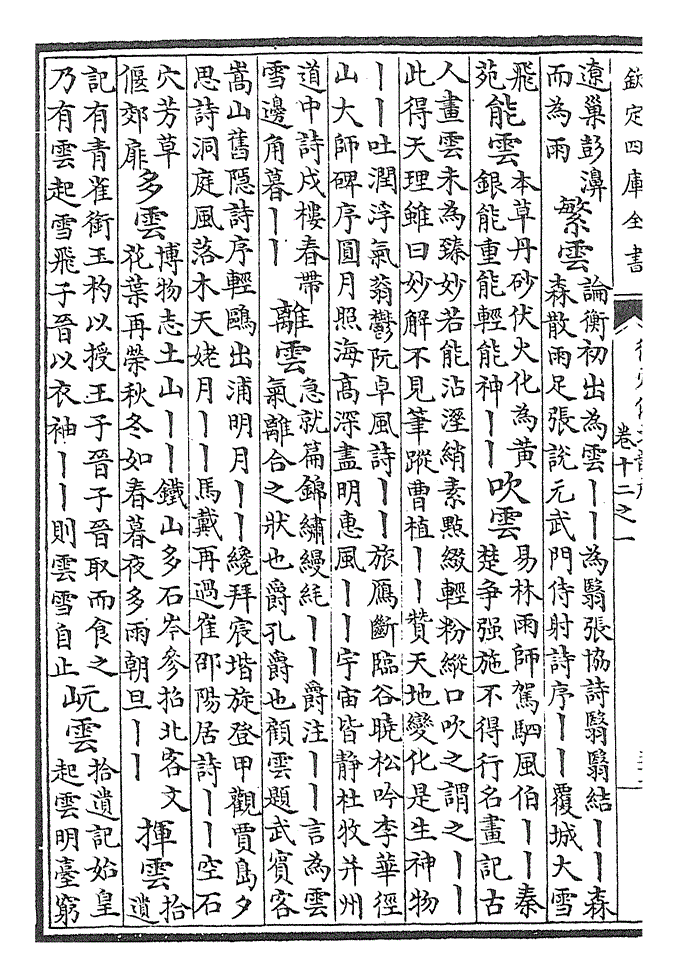 欽定四庫全書
卷十二之一
遼巢彭濞
而為雨
繁雲
論衡初出為雲丨丨為翳張協詩翳翳結丨丨森
森散雨足張說元武門侍射詩序丨丨覆城大雪
飛
苑
能雲
本草丹砂伏火化為黃
銀能重能輕能神丨丨
吹雲
易林雨師駕駟風伯丨丨秦
楚爭强施不得行名畫記古
人畫雲未為臻妙若能沾溼綃素點綴輕粉縱口吹之謂之丨丨
此得天理雖曰妙解不見筆蹤曹植丨丨贊天地變化是生神物
丨丨吐潤浮氣蓊鬱阮卓風詩丨丨旅鴈斷臨谷曉松吟李華徑
山大師碑序圓月照海高深盡明惠風丨丨宇宙皆靜杜牧并州
道中詩戍樓春帶
雪邊角暮丨丨
離雲
急就篇錦繡縵䋃丨丨爵注丨丨言為雲
氣離合之狀也爵孔爵也顧雲題武賓客
嵩山舊隱詩序輕鷗出浦明月丨丨纔拜宸堦旋登甲觀賈島夕
思詩洞庭風落木天姥月丨丨馬戴再過崔邵陽居詩丨丨空石
穴芳草
偃郊扉
多雲
博物志土山丨丨鐵山多石岑參招北客文
花葉再榮秋冬如春暮夜多雨朝旦丨丨
揮雲
拾
遺
記有青雀銜玉杓以授王子晉子晉取而食之
乃有雲起雪飛子晉以衣袖丨丨則雲雪自止
岏雲
拾遺記始皇
起雲明臺窮